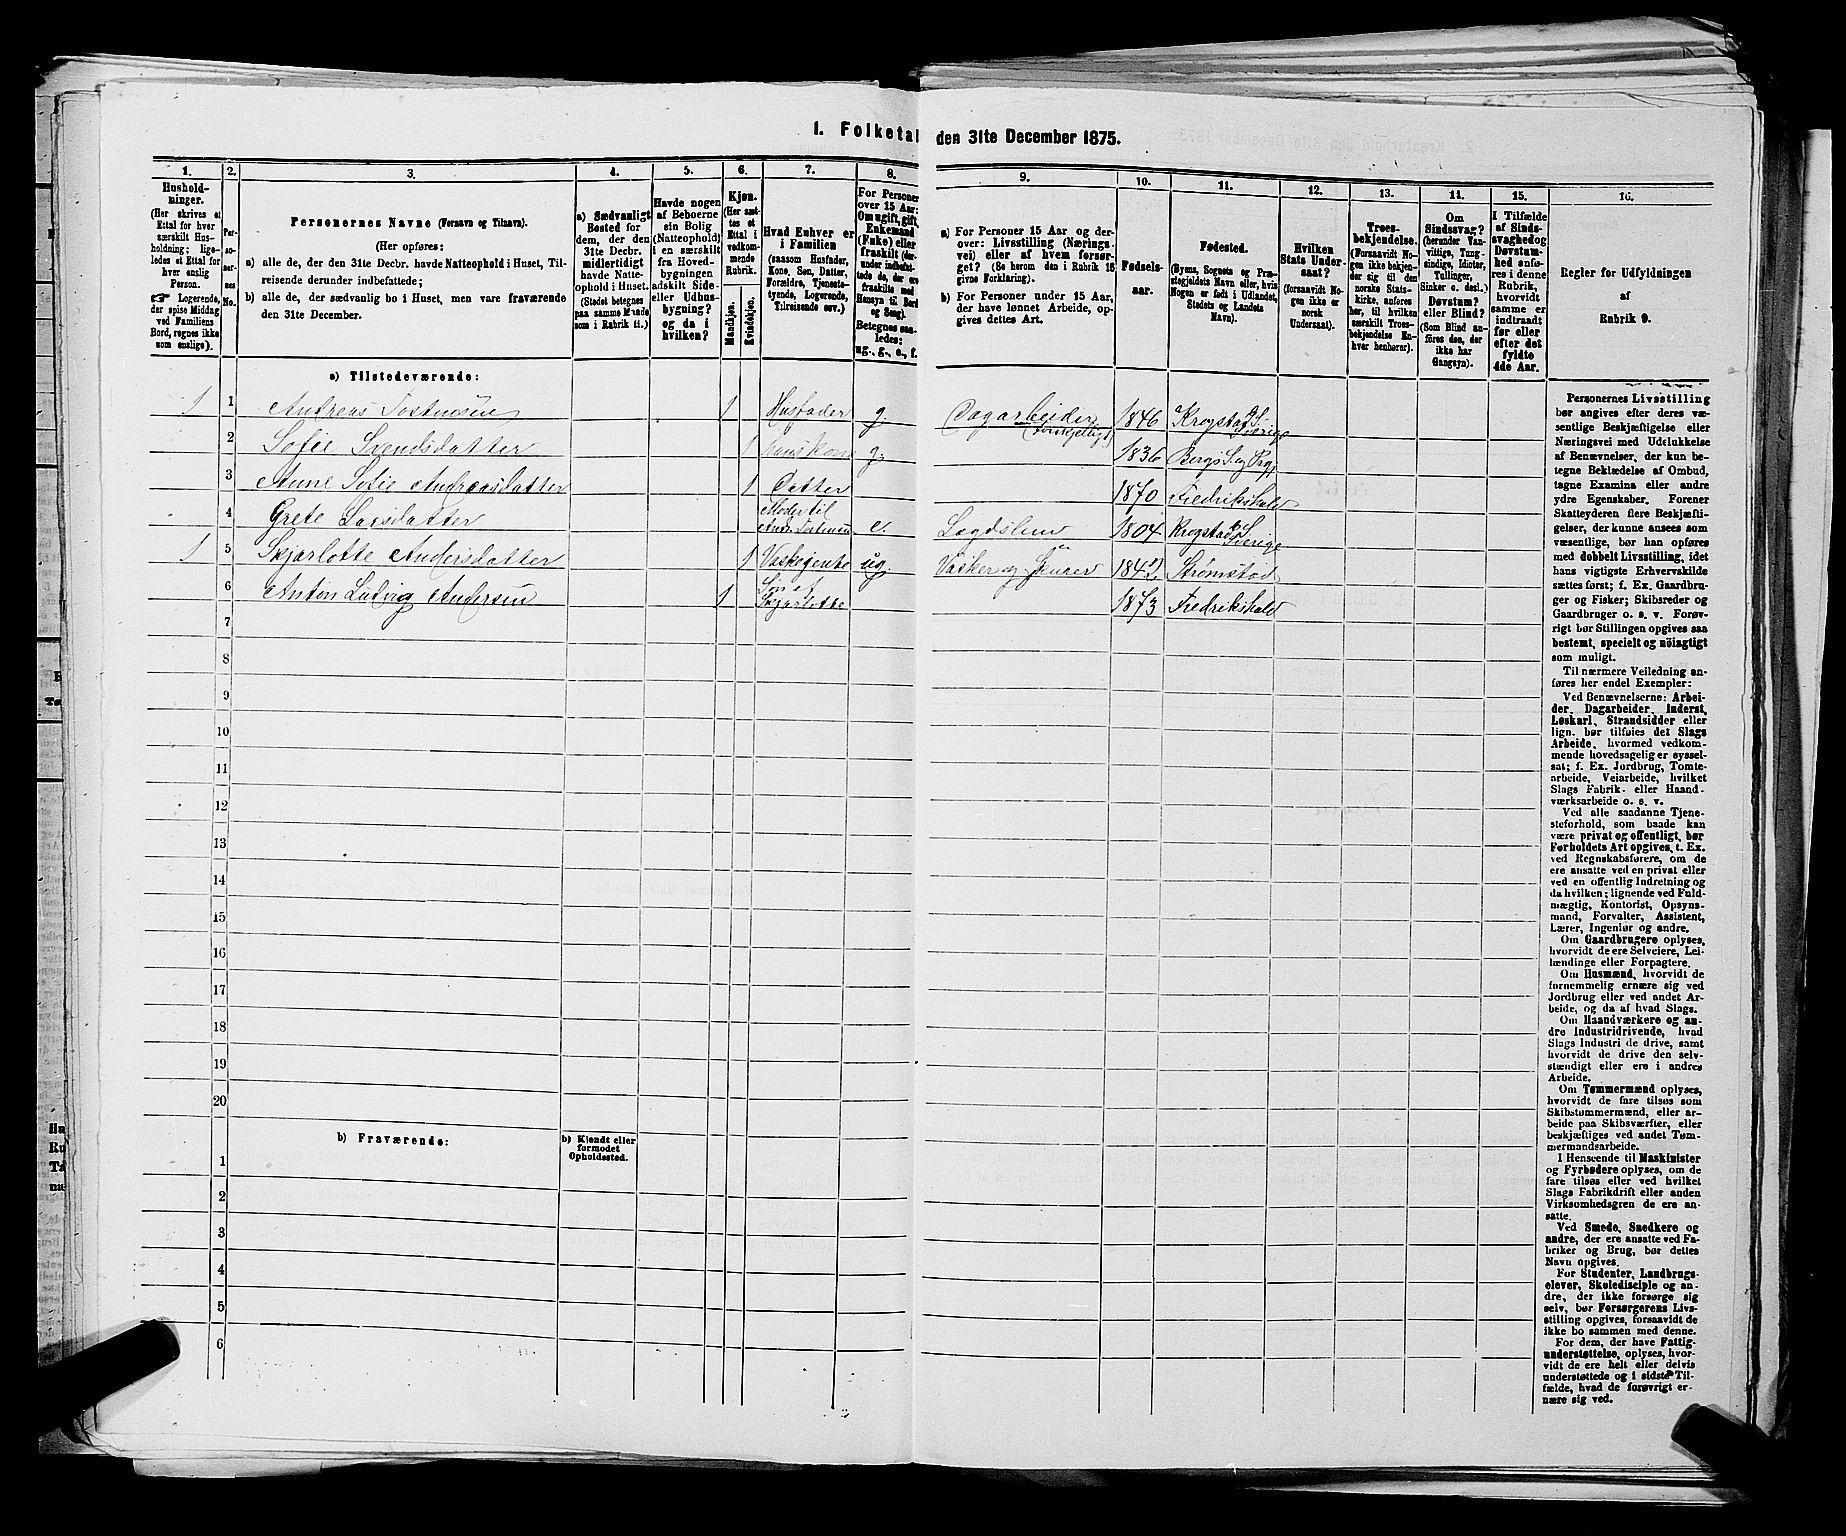 I. Folketal den 31te December 1875.
1. 2. 3. 4. 5. 6. 7. 8. 9. 10. 11. 12. 13. 14. 15. 16.
Husholdninger.
(Her skrives et
Ettal for hver
særskilt Husholdning;
ligeledes et Ettal for
hver enslig
Person.
☞ Logerende,
der spise Middag
ved Familiens
Bord, regnes ikke
som enslige).
Personernes No.
Personernes Navne (Fornavn og Tilnavn).
(Her opføres:
a) alle de, der den 31te Decbr. havde Natteophold i Huset, Tilreisende derunder indbefattede;
b) alle de, der sædvanlig bo i Huset, men vare fraværende
den 31te December.
a) Sædvanligt
Bosted for
dem, der den
31te Decbr.
midlertidigt
havde Natteophold i Huset.
(Stedet betegnes
paa samme Maade
som i Rubrik 11.)
Havde nogen
af Beboerne
sin Bolig
(Natteophold)
i en særskilt
fra Hovedbygningen
adskilt Side-
eller Udhusbygning?
og da i
hvilken?
Kjøn.
(Her sættes et
Ettal i
vedkommende
Rubrik.
Mandkjøn.
Kvindekjøn.
Hvad Enhver er
i Familien
(saasom Husfader,
Kone, Søn, Datter,
Forældre, Tjenestetyende, Logerende,
Tilreisende osv.)
For Personer
over 15 Aar:
Om ugift, gift,
Enkemand
(Enke) eller
fraskilt (derunder indbefattede, de, der ere
fraskilte med
Hensyn til Bord
og Seng).
Betegnes saaledes:
ug., g., e., f.
a) For Personer 15 Aar og derover: Livsstilling (Næringsvei) eller af hvem forsørget? (Se herom den i Rubrik 16
givne Forklaring).
b) For Personer under 15 Aar,
der have lønnet Arbeide, opgives dettes Art.
Fødselsaar.
Fødested.
(Byens, Sognets og Præstegjeldets Navn eller, hvis
Nogen er født i Udlandet,
Stedets og Landets
Navn).
Hvilken
Stats Undersaat?
(forsaavidt Nogen ikke er
norsk
Undersaat).
Troesbekjendelse.
(Forsaavidt Nogen ikke bekjender sig til den
norske Statskirke, anføres
her, til hvilken
særskilt Troesbekjendelse Enhver henhører).
Om
Sindssvag?
(herunder Vanvittige, Tungsindige, Idioter,
Tullinger,
Sinker o. desl.)
Døvstum?
eller Blind?
(Som Blind anføres den, der
ikke har
Gangsyn).
I Tilfælde
af Sindssvaghed og
Døvstumhed anføres i denne
Rubrik,
hvorvidt
samme er
indtraadt
før eller
efter det
fyldte
4de Aar.
Regler for Udfyldningen
af
Rubrik 9.
a) Tilstedeværende:
1 1 Andreas Tostensen 1 Husfader g. Dagarbeider 1846 Krogstad S. Sverige
2 Sofie Svendsdatter 1 hans Kone g. 1836 Bergs S. og Prgj
3 Anne Sofie Andreasdatter 1 Datter 1870 Fredrikshald
4 Grete Larsdatter Moder til Andr. Tostensen e. Lægdslem 1804 Krogstad S. Sverige
1 5 Skjarlotte Andersdatter 1 Vaskejente ug. Vasker og Skurer 1842 Strømstad
6 Anton Ludvig Andersen 1 Søn af Skjarlotte 1873 Fredrikshald
7
8
9
10
11
12
13
14
15
16
17
18
19
20
b) Fraværende:
b) Kjendt eller
formodet
Opholdssted.
1
2
3
4
5
6
Personernes Livsstilling
bør angives efter deres væsentlige Beskjæftigelse eller
Næringsvei med Udelukkelse
af Benævnelser, der kun betegne Beklædelse af Ombud,
tagne Examina eller andre
ydre Egenskaber. Forener
Skatteyderen flere Beskjæftigelser, der kunne ansees som
væsentlige, bør han opføres
med dobbelt Livsstilling, idet
hans vigtigste Erhvervskilde
sættes først; f. Ex. Gaardbruger og Fisker; Skibsreder og
Gaardbruger o. s. v. Forøvrigt bør Stillingen opgives saa
bestemt, specielt og nöiagtigt
som muligt.
Til nærmere Veiledning anføres her endel Exempler:
Ved Benævnelserne: Arbeider, Dagarbeider, Inderst,
Løskarl, Strandsidder eller
lign. bør tilføies det Slags
Arbeide, hvormed vedkommende hovedsagelig er sysselsat; f. Ex. Jordbrug, Tomtearbeide, Veiarbeide, hvilket
Slags Fabrik- eller Haandværksarbeide o. s. v.
Ved alle saadanne Tjenesteforhold, som baade kan
være privat og offentligt, bør
Forholdets Art opgives, t. Ex.
ved Regnskabsførere, om de
ere ansatte ved en privat eller
ved en offentlig Indretning og
da hvilken; lignende ved Fuldmægtig, Kontorist, Opsynsmand, Forvalter, Assistent,
Lærer, Ingeniør og andre.
Om Gaardbrugere oplyses,
hvorvidt de ere Selveiere, Leilændinge eller Forpagtere.
Om Husmænd, hvorvidt de
fornemmelig ernære sig ved
Jordbrug eller ved andet Arbeide, og da af hvad Slags.
Om Haandværkere og andre Industridrivende, hvad
Slags Industri de drive, samt
hvorvidt de drive den selvstændigt eller ere i andres
Arbeide.
Om Tømmermænd oplyses,
hvorvidt de fare tilsøs som
Skibstømmermænd, eller arbeide paa Skibsværfter, eller
beskjæftiges ved andet Tømmermandsarbeide.
I Henseende til Maskinister
og Fyrbødere oplyses, om de
fare tilsøs eller ved hvilket
Slags Fabrikdrift eller anden
Virksomhedsgren de ere ansatte.
Ved Smede, Snedkere og
andre, der ere ansatte ved Fabriker og Brug, bør dettes
Navn opgives.
For Studenter, Landbrugselever, Skoledisciple og andre, der ikke forsørge sig
selv, bør Forsørgerens Livsstilling opgives, forsaavidt de
ikke bo sammen med denne.
For dem, der have Fattigunderstøttelse, oplyses, hvorvidt de ere helt eller delvis
understøttede og i sidste Tilfælde, hvad de forøvrigt ernære sig ved.